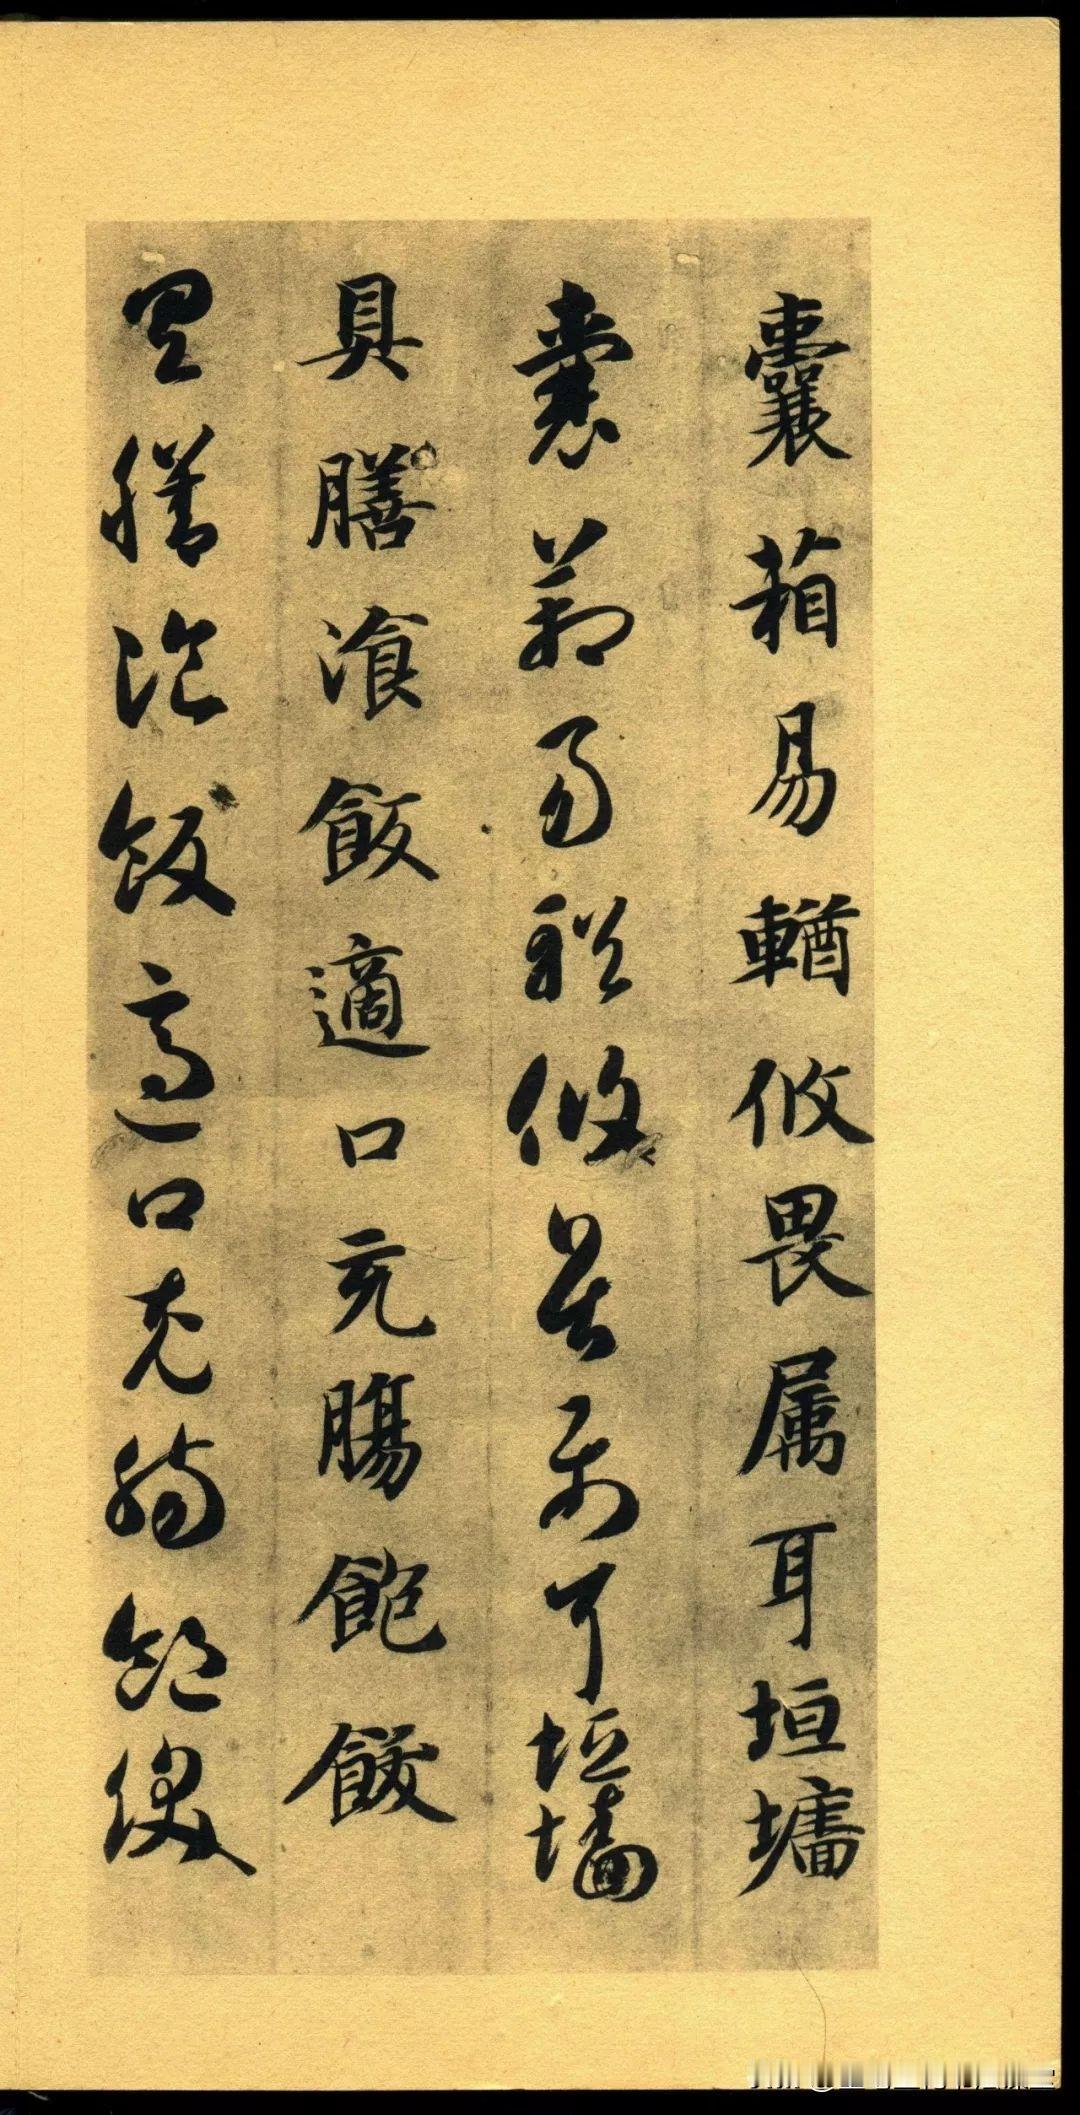 囊葙易輶攸畏属耳垣墻
囊葙易輶攸畏属耳垣墻
具膳飡飯適口充腸飽飫
具膳飡飯適口充腸飽飫